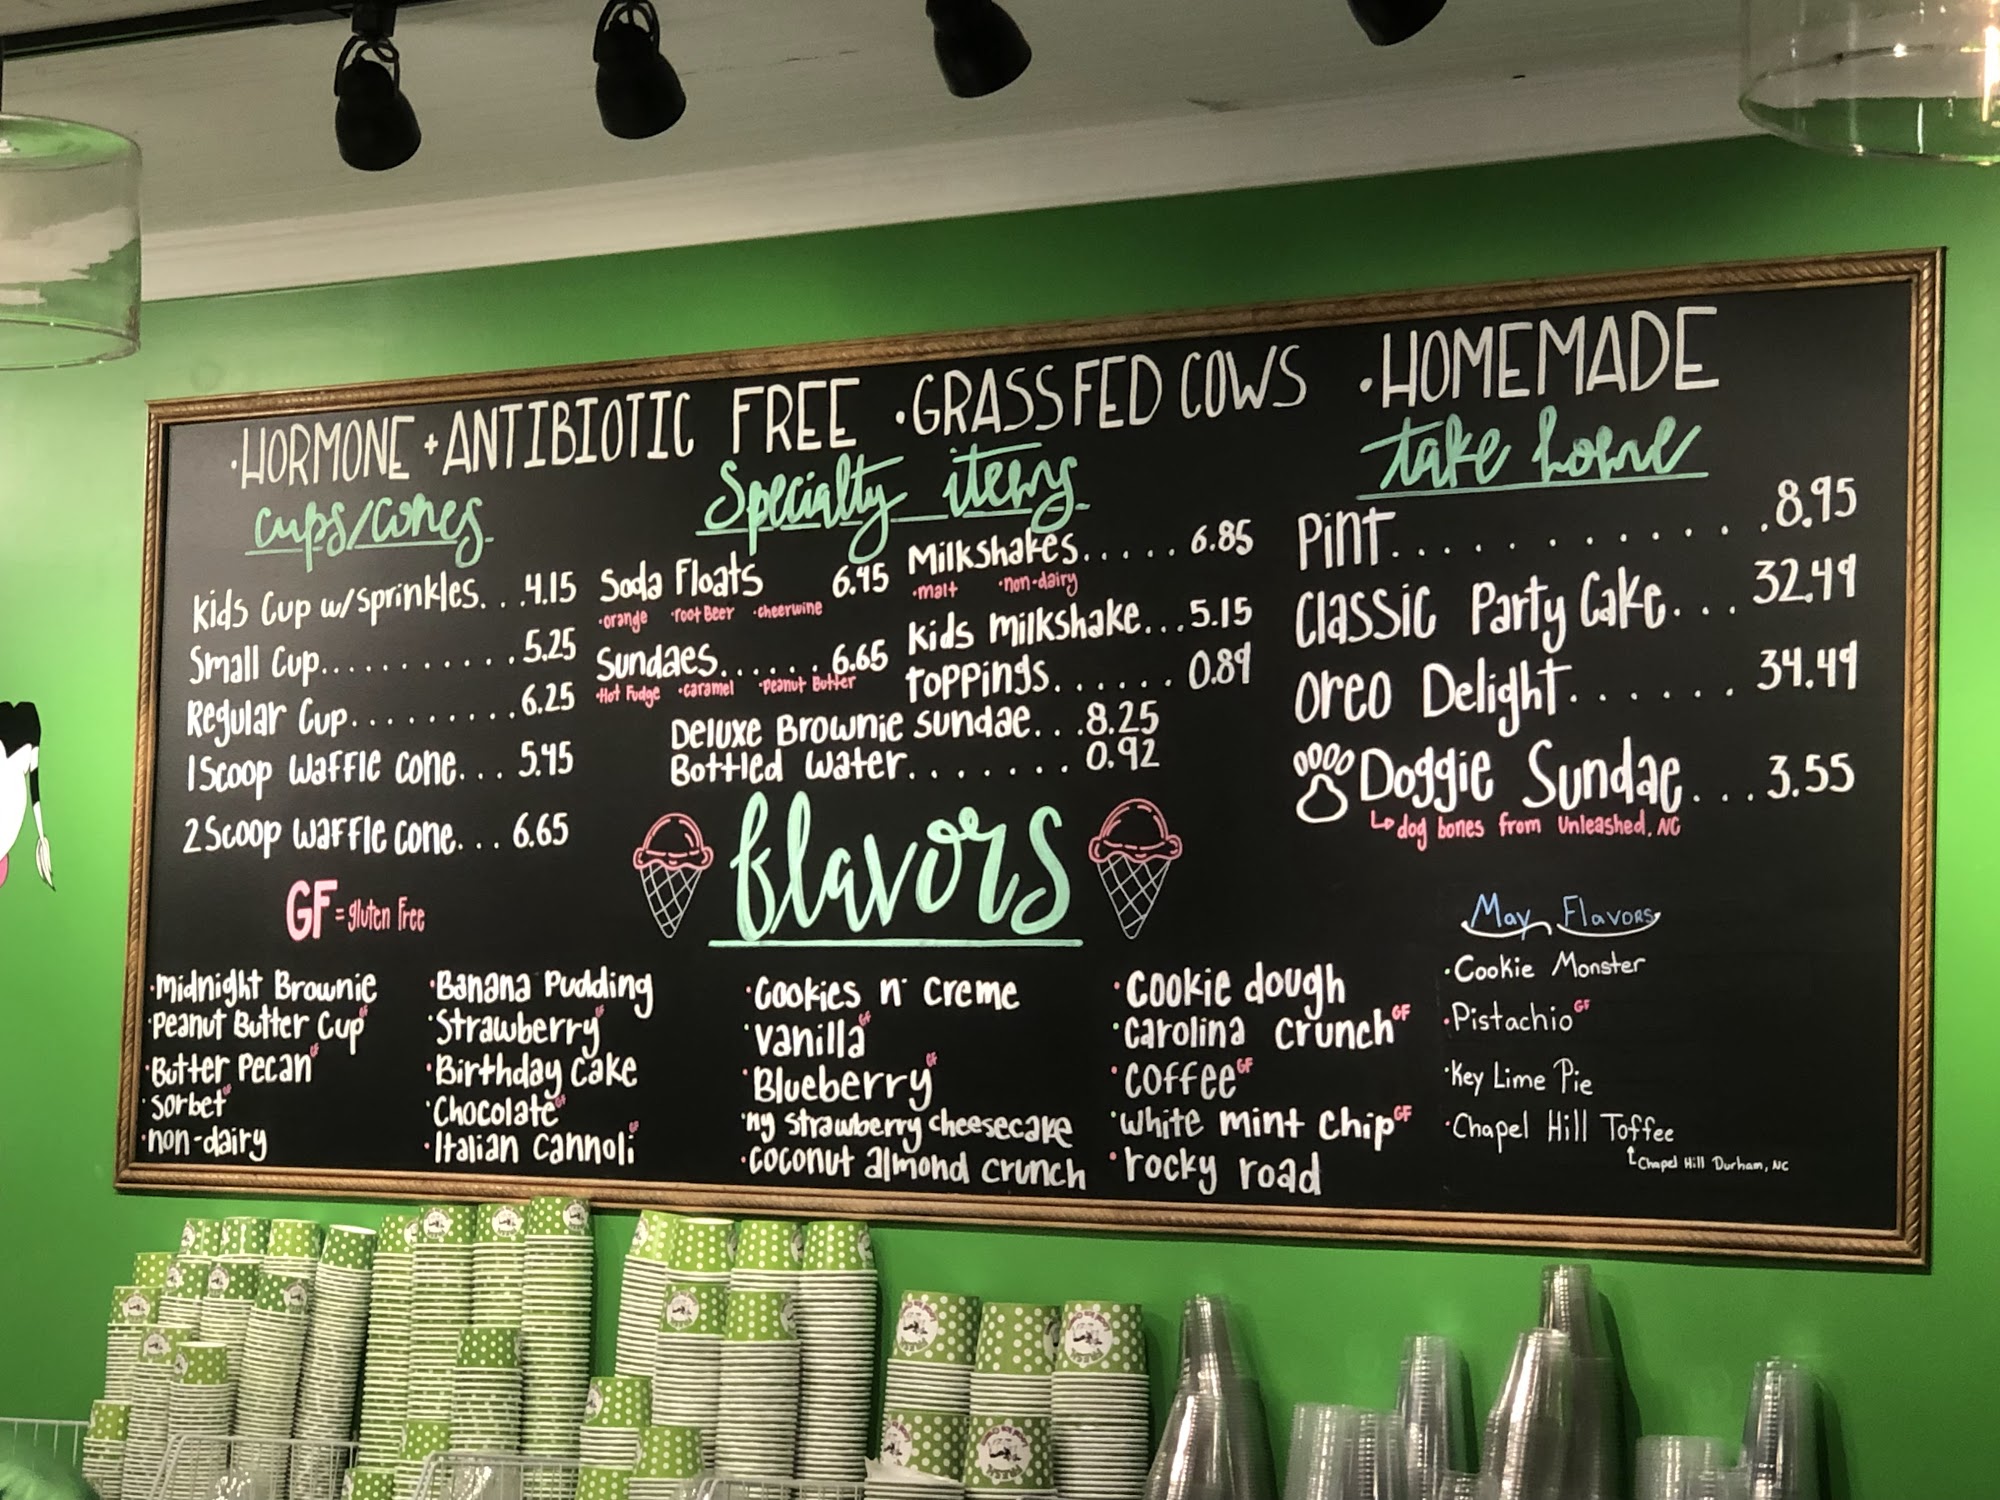 ·HORMONE + ANTIBIOTIC FREE ·GRASS FED COWS ·HOMEMADE
cups/cones
Kids Cup w/sprinkles...4.15
Small Cup...........5.25
Regular Cup.........6.25
1 Scoop Waffle Cone...5.45
2 Scoop Waffle Cone...6.65
GF = gluten Free
Specialty items
Soda Floats 6.45
·orange ·root Beer ·cheerwine
Sundaes......6.65
·Hot Fudge ·caramel ·Peanut Butter
Milkshakes.....6.85
·malt ·non-dairy
Kids Milkshake...5.15
Toppings......0.89
Deluxe Brownie Sundae...8.25
Bottled Water.......0.92
take home
Pint............8.95
Classic Party Cake...32.49
Oreo Delight......34.49
Doggie Sundae...3.55
dog bones from Unleashed, NC
flavors
·Midnight Brownie
·Peanut Butter Cup GF
·Butter Pecan GF
·Sorbet GF
·non-dairy
·Banana Pudding
·Strawberry GF
·Birthday Cake
·Chocolate GF
·Italian Cannoli GF
·Cookies n' Creme
·Vanilla GF
·Blueberry GF
·ny strawberry cheesecake
·coconut almond crunch
·Cookie dough
·Carolina Crunch GF
·Coffee GF
·white mint chip GF
·rocky road
May Flavors
·Cookie Monster
·Pistachio GF
·Key Lime Pie
·Chapel Hill Toffee
Chapel Hill Durham, NC